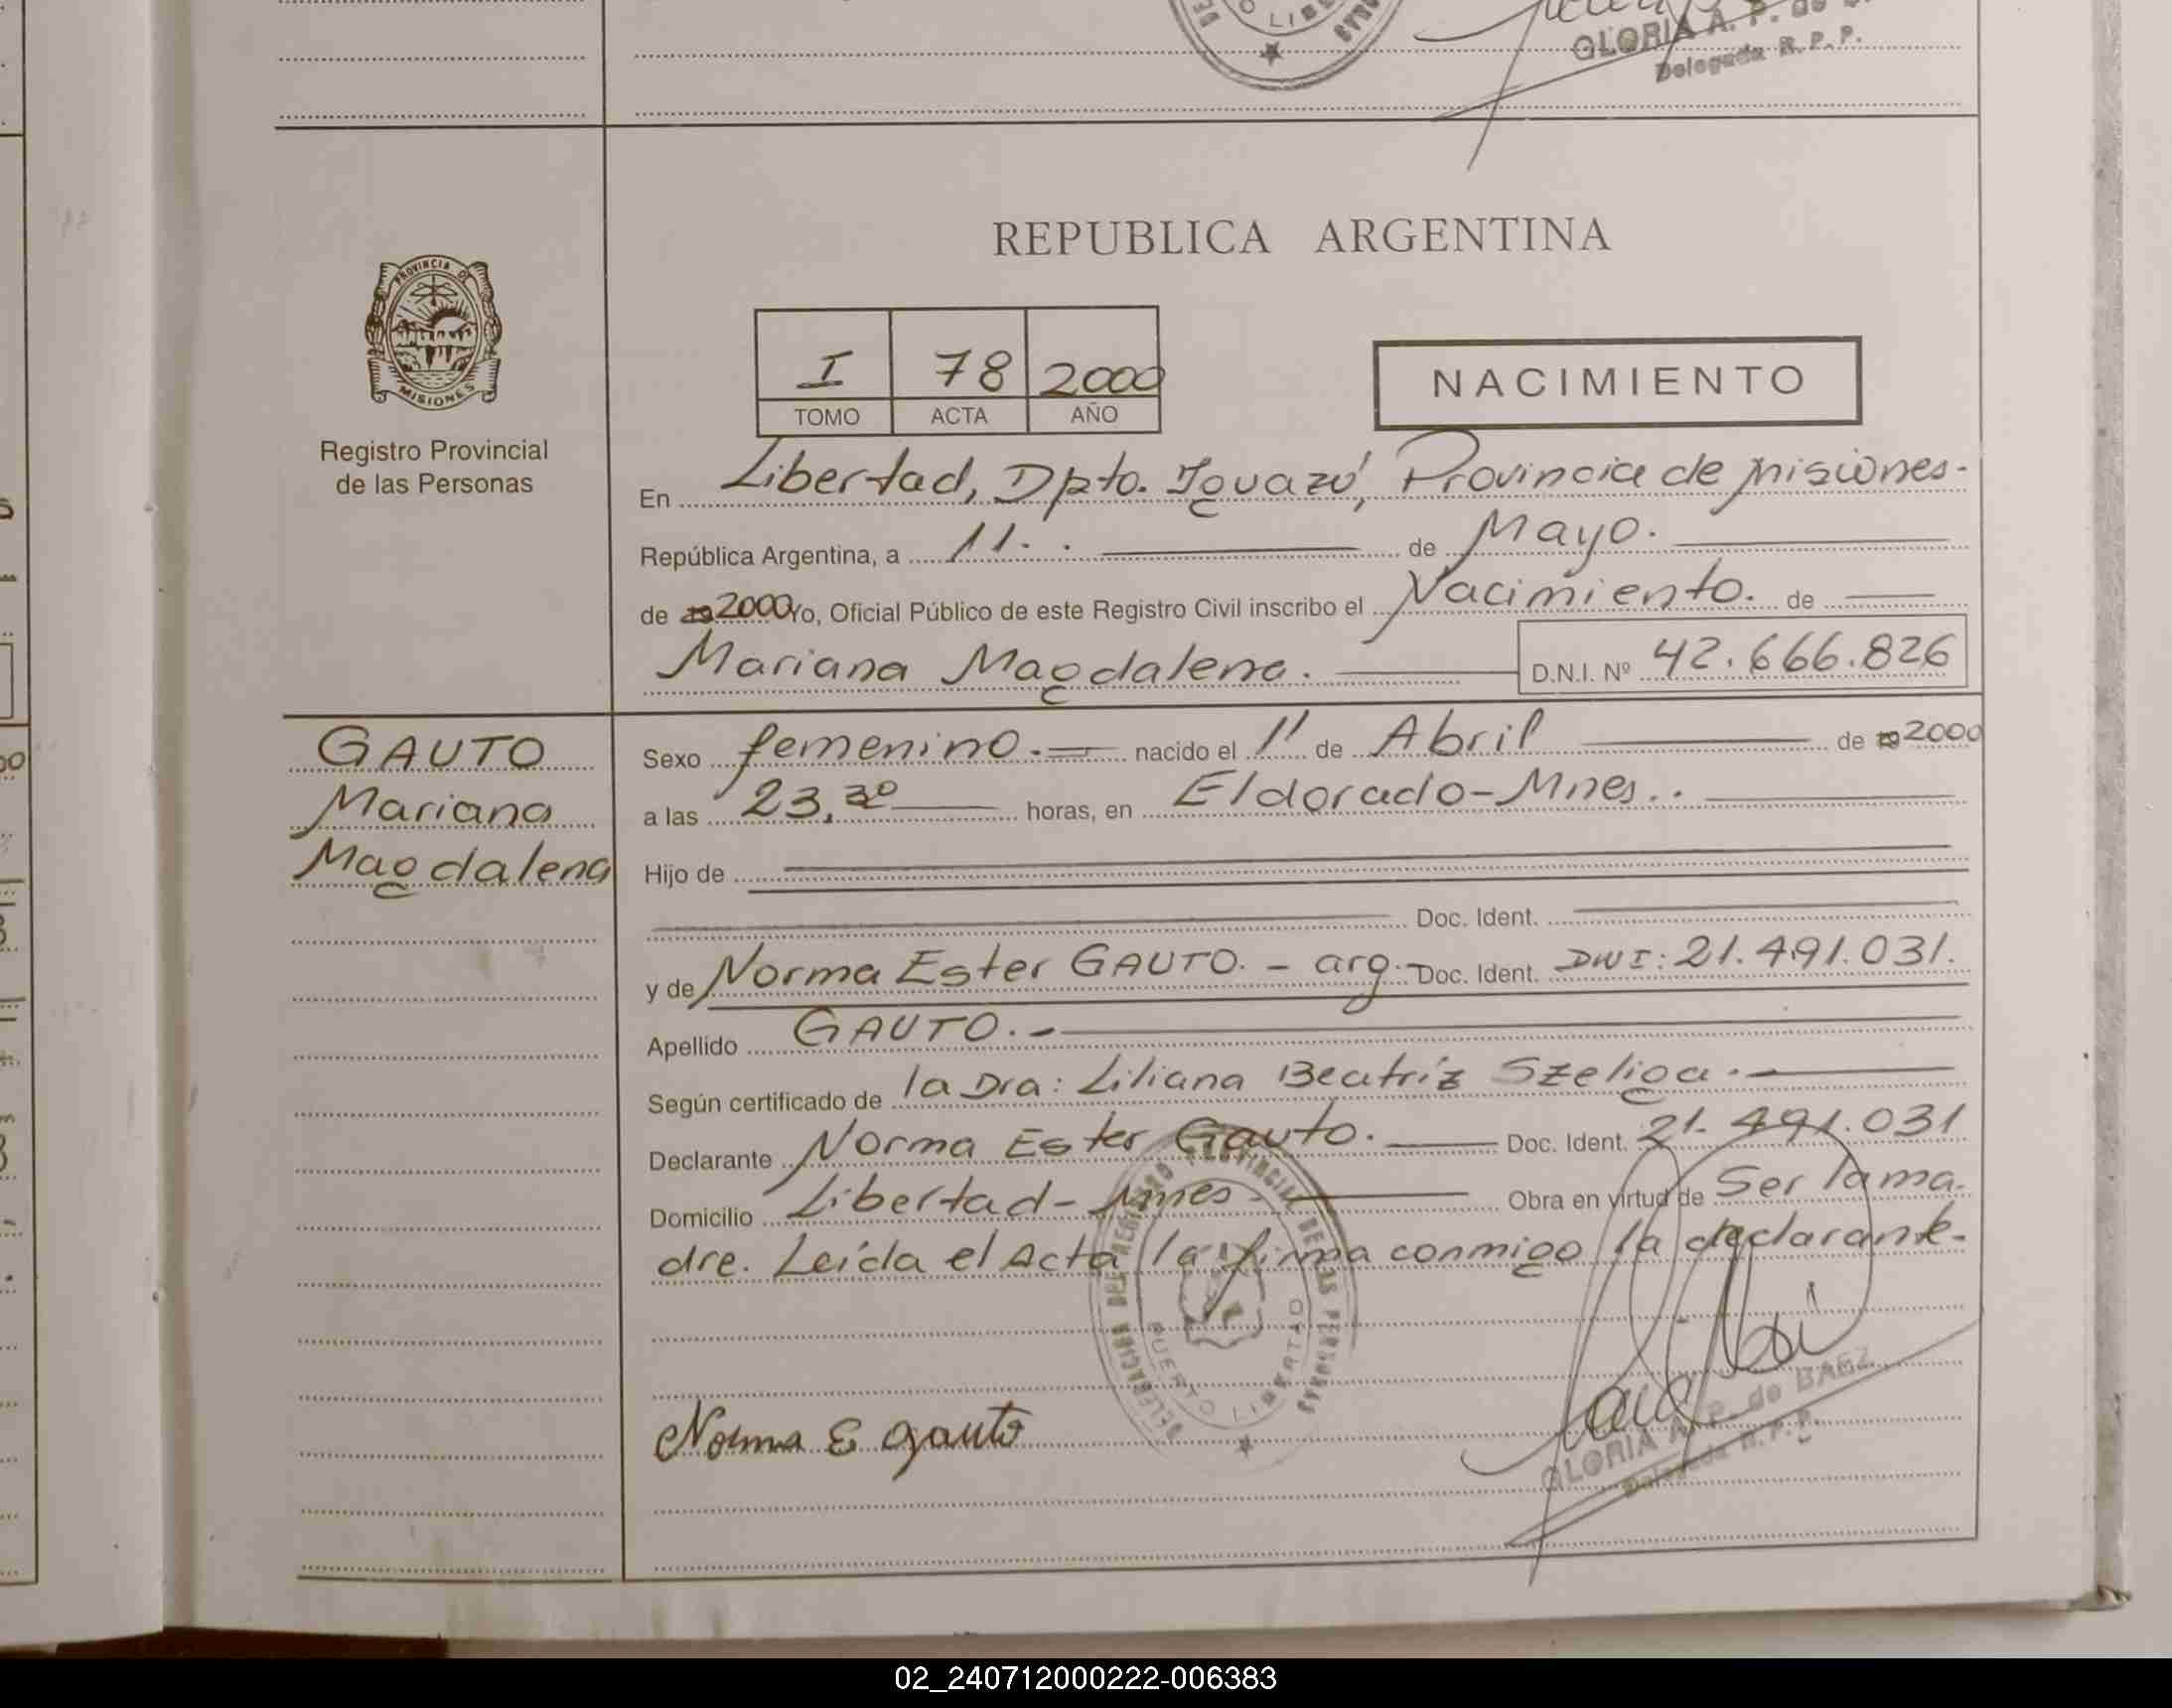 GLORIA A. P. de
Delegada R. P. P.
REPUBLICA ARGENTINA
PROVINCIA DE
MISIONES
Registro Provincial
de las Personas
I 78 2000
TOMO ACTA AÑO
NACIMIENTO
En Libertad, Dpto. Iguazú, Provincia de Misiones-
República Argentina, a 11. de Mayo.
de 19 2000 Yo, Oficial Público de este Registro Civil inscribo el Nacimiento. de
Mariana Magdalena. D.N.I. Nº 42.666.826
GAUTO
Mariana
Magdalena
Sexo femenino. nacido el 11 de Abril de 19 2000
a las 23,30 horas, en Eldorado-Mnes..
Hijo de
Doc. Ident.
y de Norma Ester GAUTO. - arg. Doc. Ident. DNI: 21.491.031.
Apellido GAUTO.-
Según certificado de la Dra: Liliana Beatriz Szeliga.-
Declarante Norma Ester Gauto. Doc. Ident. 21.491.031
Domicilio Libertad-Mnes- Obra en virtud de Ser la ma.
dre. Leída el Acta la firma conmigo la declarante.
DELEGACION DEL REGISTRO PROVINCIAL DE LAS PERSONAS
PUERTO LIBERTAD
Norma E Gauto
GLORIA A. P. de BAEZ
Delegada R. P. P.
02_240712000222-006383